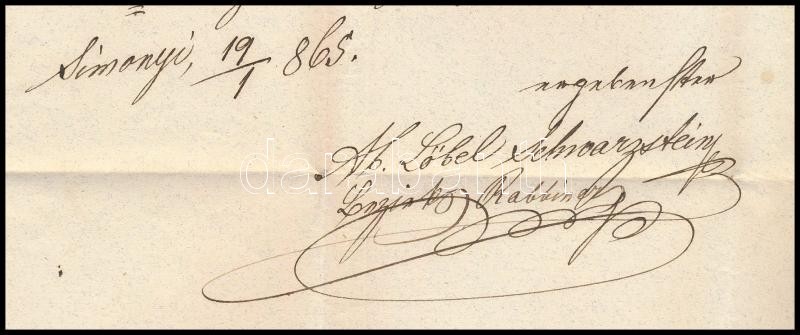 Simonyi, 19/1 865.
ergebenster
Ab. Löbel Schwarzstein
Bezirks Rabbiner
darabanth